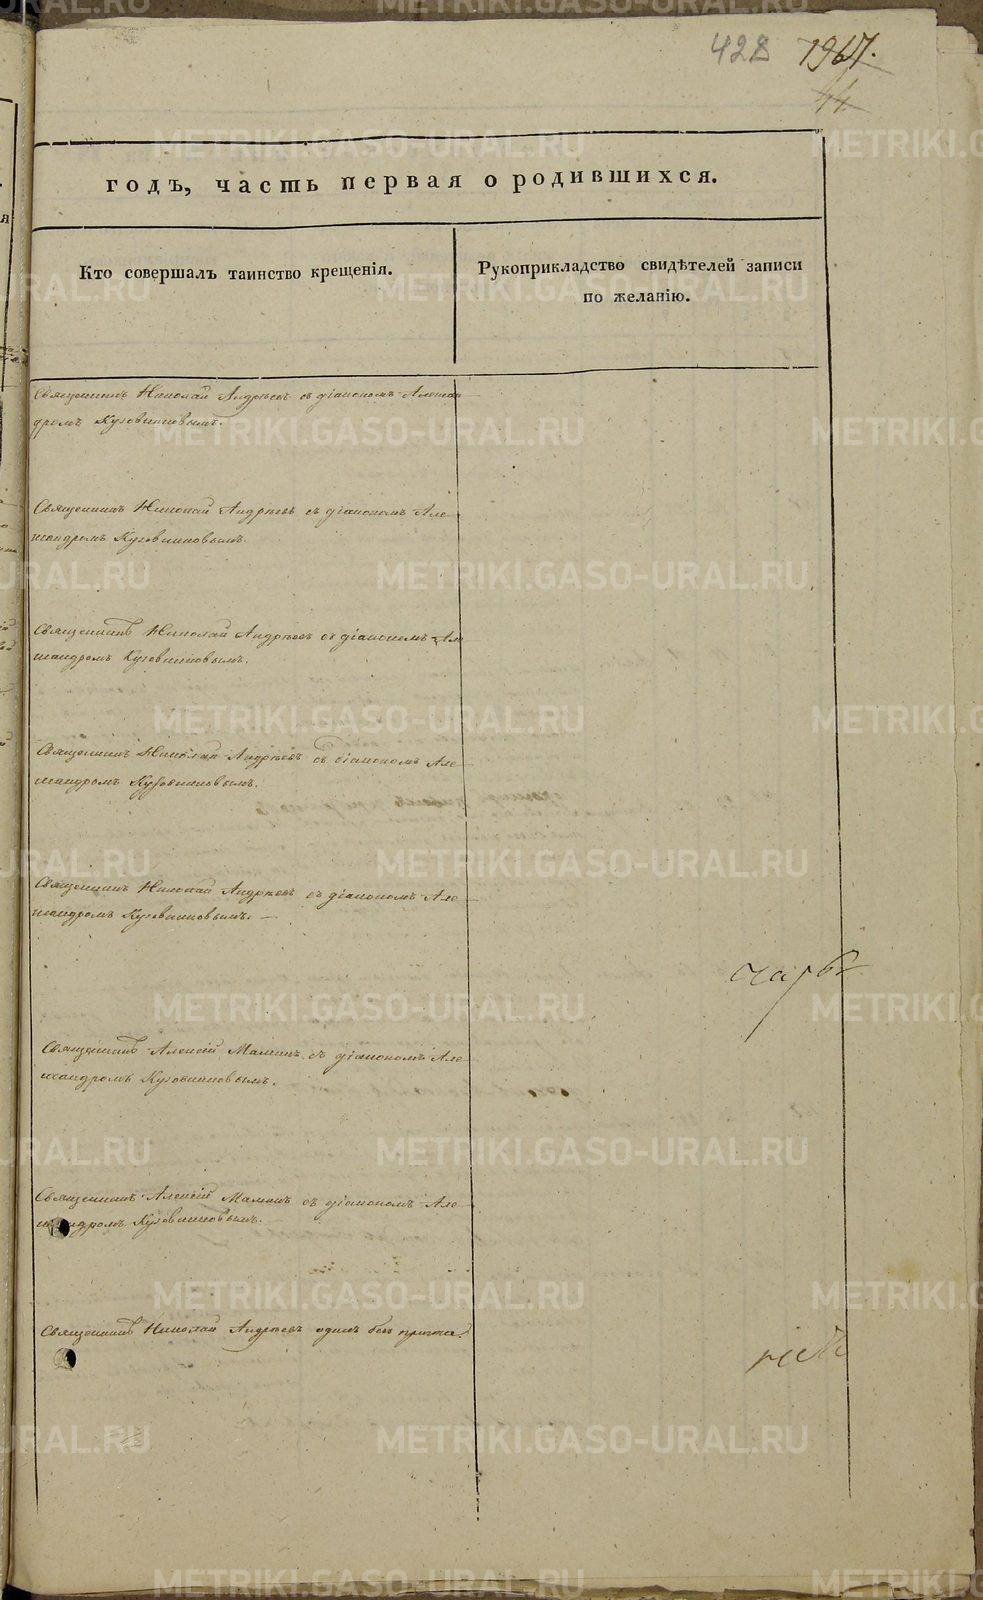 428 1967.
44
годъ, часть первая о родившихся.
Кто совершалъ таинство крещенія.
Рукоприкладство свидѣтелей записи
по желанію.
Священникъ Николай Андреевъ съ діакономъ Алексан
дромъ Кузовниковымъ.
Священникъ Николай Андреевъ съ діакономъ Але
ксандромъ Кузовниковымъ.
Священникъ Николай Андреевъ съ діакономъ Але
ксандромъ Кузовниковымъ.
Священникъ Николай Андреевъ съ діакономъ Але
ксандромъ Кузовниковымъ.
Священникъ Николай Андреевъ съ діакономъ Але
ксандромъ Кузовниковымъ. —
Священникъ Алексій Маминъ съ діакономъ Але
ксандромъ Кузовниковымъ.
Священникъ Алексій Маминъ съ діакономъ Але
ксандромъ Кузовниковымъ.
Священникъ Николай Андреевъ одинъ безъ причта.
METRIKI.GASO-URAL.RU